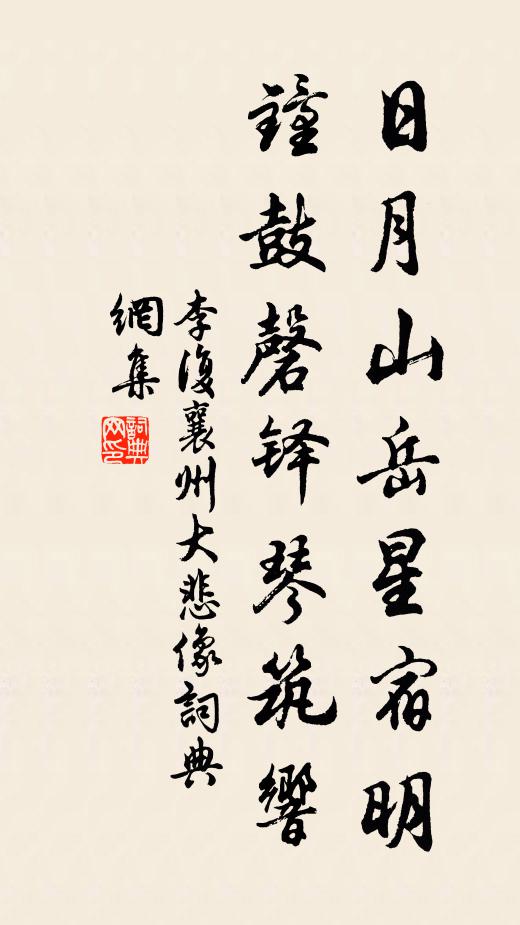 日月山岳星宿明
鐘鼓磬铎琴筑響
李復襄州大悲像詞典
網集
詞典
网印